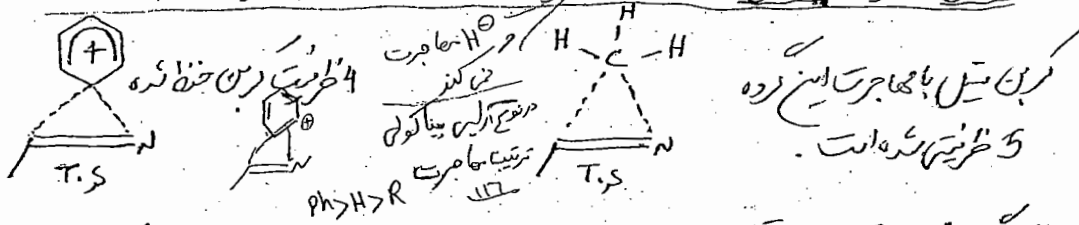 H
H C H
کربن متیل با مهاجرت این گروه
5 ظرفیتی شده است.
N
T.S
H⊖ مهاجرت
می کند
در نوآرایی پیناکولی
ترتیب مهاجرت
Ph>H>R
4 ظرفیت کربن حفظ شده
+
N
T.S
⊕
N